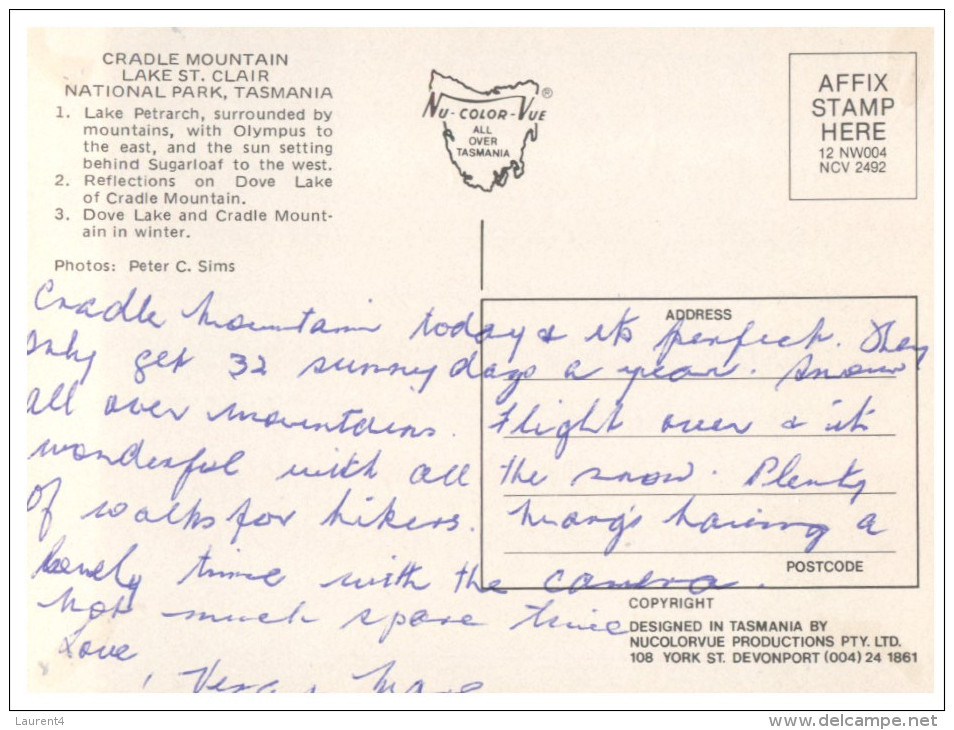 CRADLE MOUNTAIN
LAKE ST. CLAIR
NATIONAL PARK, TASMANIA
1. Lake Petrarch, surrounded by
mountains, with Olympus to
the east, and the sun setting
behind Sugarloaf to the west.
2. Reflections on Dove Lake
of Cradle Mountain.
3. Dove Lake and Cradle Mount-
ain in winter.
Photos: Peter C. Sims
NU-COLOR-VUE ®
ALL
OVER
TASMANIA
AFFIX
STAMP
HERE
12 NW004
NCV 2492
ADDRESS
Cradle Mountain today & its perfect. They
only get 32 sunny days a year. Snow
all over mountains. Flight over & it
wonderful with all the snow. Plenty
of walks for hikers. Marg's having a
lovely time with the camera.
Not much spare time
Love
Vera & Marg
POSTCODE
COPYRIGHT
DESIGNED IN TASMANIA BY
NUCOLORVUE PRODUCTIONS PTY. LTD.
108 YORK ST. DEVONPORT (004) 24 1861
Laurent4
www.delcampe.net